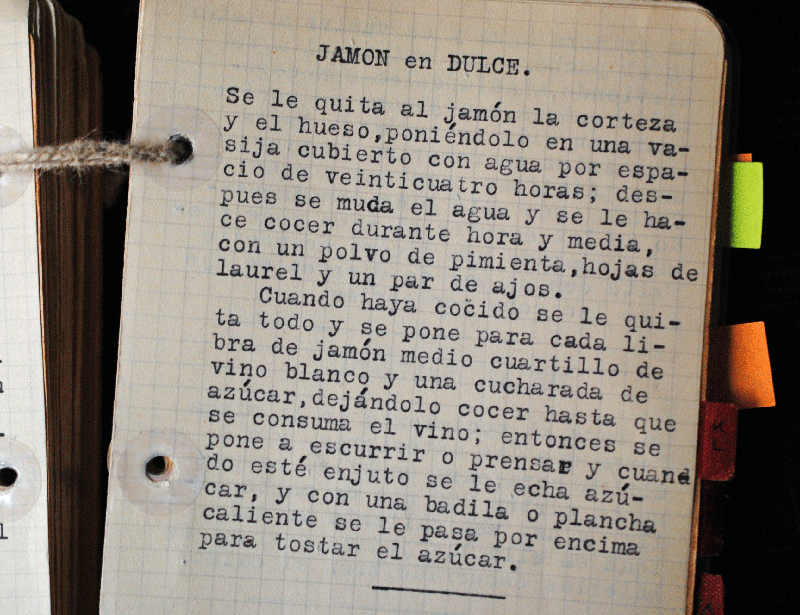 JAMON en DULCE.
Se le quita al jamón la corteza
y el hueso,poniéndolo en una va-
sija cubierto con agua por espa-
cio de veinticuatro horas; des-
pues se muda el agua y se le ha-
ce cocer durante hora y media,
con un polvo de pimienta,hojas de
laurel y un par de ajos.
Cuando haya cocido se le qui-
ta todo y se pone para cada li-
bra de jamón medio cuartillo de
vino blanco y una cucharada de
azúcar,dejándolo cocer hasta que
se consuma el vino; entonces se
pone a escurrir o prensar y cuand
do esté enjuto se le echa azú-
car, y con una badila o plancha
caliente se le pasa por encima
para tostar el azúcar.
K
L